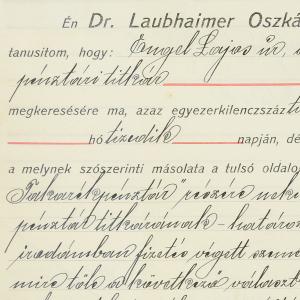 Én Dr. Laubhaimer Oszká
tanusitom, hogy: Engel Lajos úr, a
pénztári titkár
megkeresésére ma, azaz egyezerkilenczszáz ti
hó tizedik napján, dé
a melynek szószerinti másolata a tulsó oldalo
Takarékpénztár részére neki
pénztár titkárának - határoz
irodámban fizetés végett szeme
mire tőle a következő választ